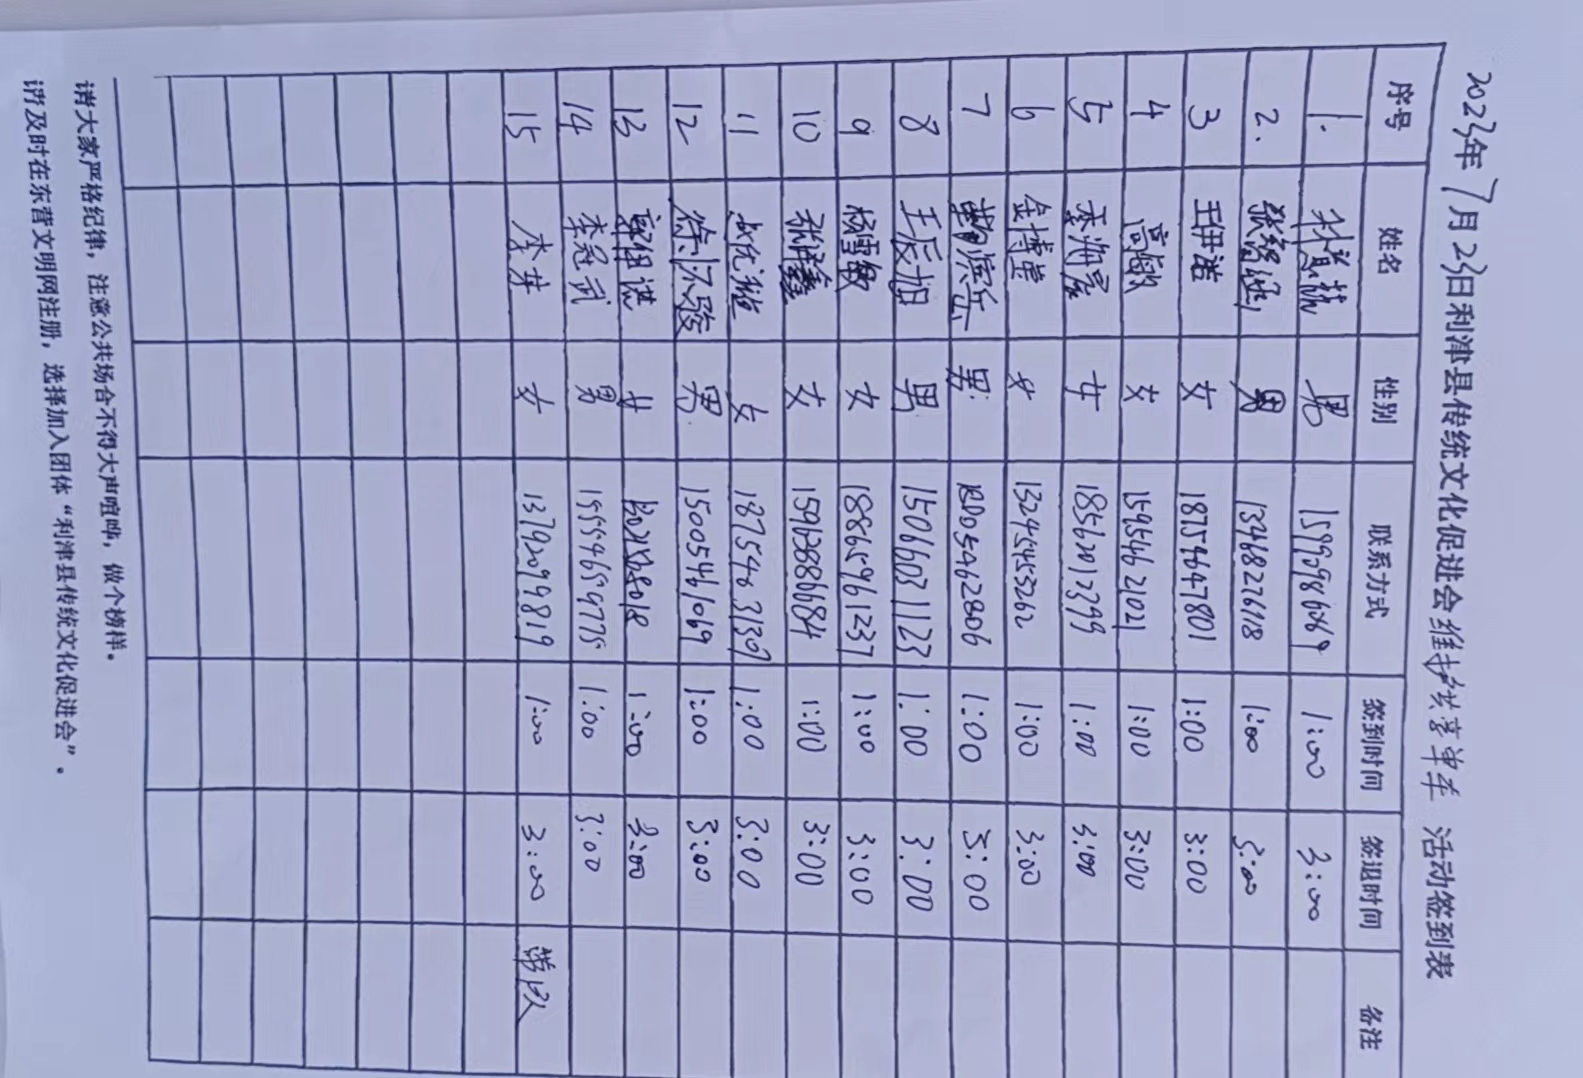 2023年7月23日利津县传统文化促进会维护共享单车 活动签到表
序号 姓名 性别 联系方式 签到时间 签退时间 备注
1. 男 1:00 3:00
2. 男 13468276118 1:00 3:00
3 王钰诺 女 18754647801 1:00 3:00
4 高敏 女 15954621021 1:00 3:00
5 李海霞 女 18562012399 1:00 3:00
6 金博雯 女 13245453262 1:00 3:00
7 男 1:00 3:00
8 王辰旭 男 15066031123 1:00 3:00
9 杨雪敏 女 18865961237 1:00 3:00
10 女 15962886684 1:00 3:00
11 女 1:00 3:00
12 徐怀骏 男 15005461069 1:00 3:00
13 女 1:00 3:00
14 李冠武 男 15554659775 1:00 3:00
15 李萍 女 13792099819 1:00 3:00 带队
请大家严格纪律，注意公共场合不得大声喧哗，做个榜样。
请及时在东营文明网注册，选择加入团体“利津县传统文化促进会”。